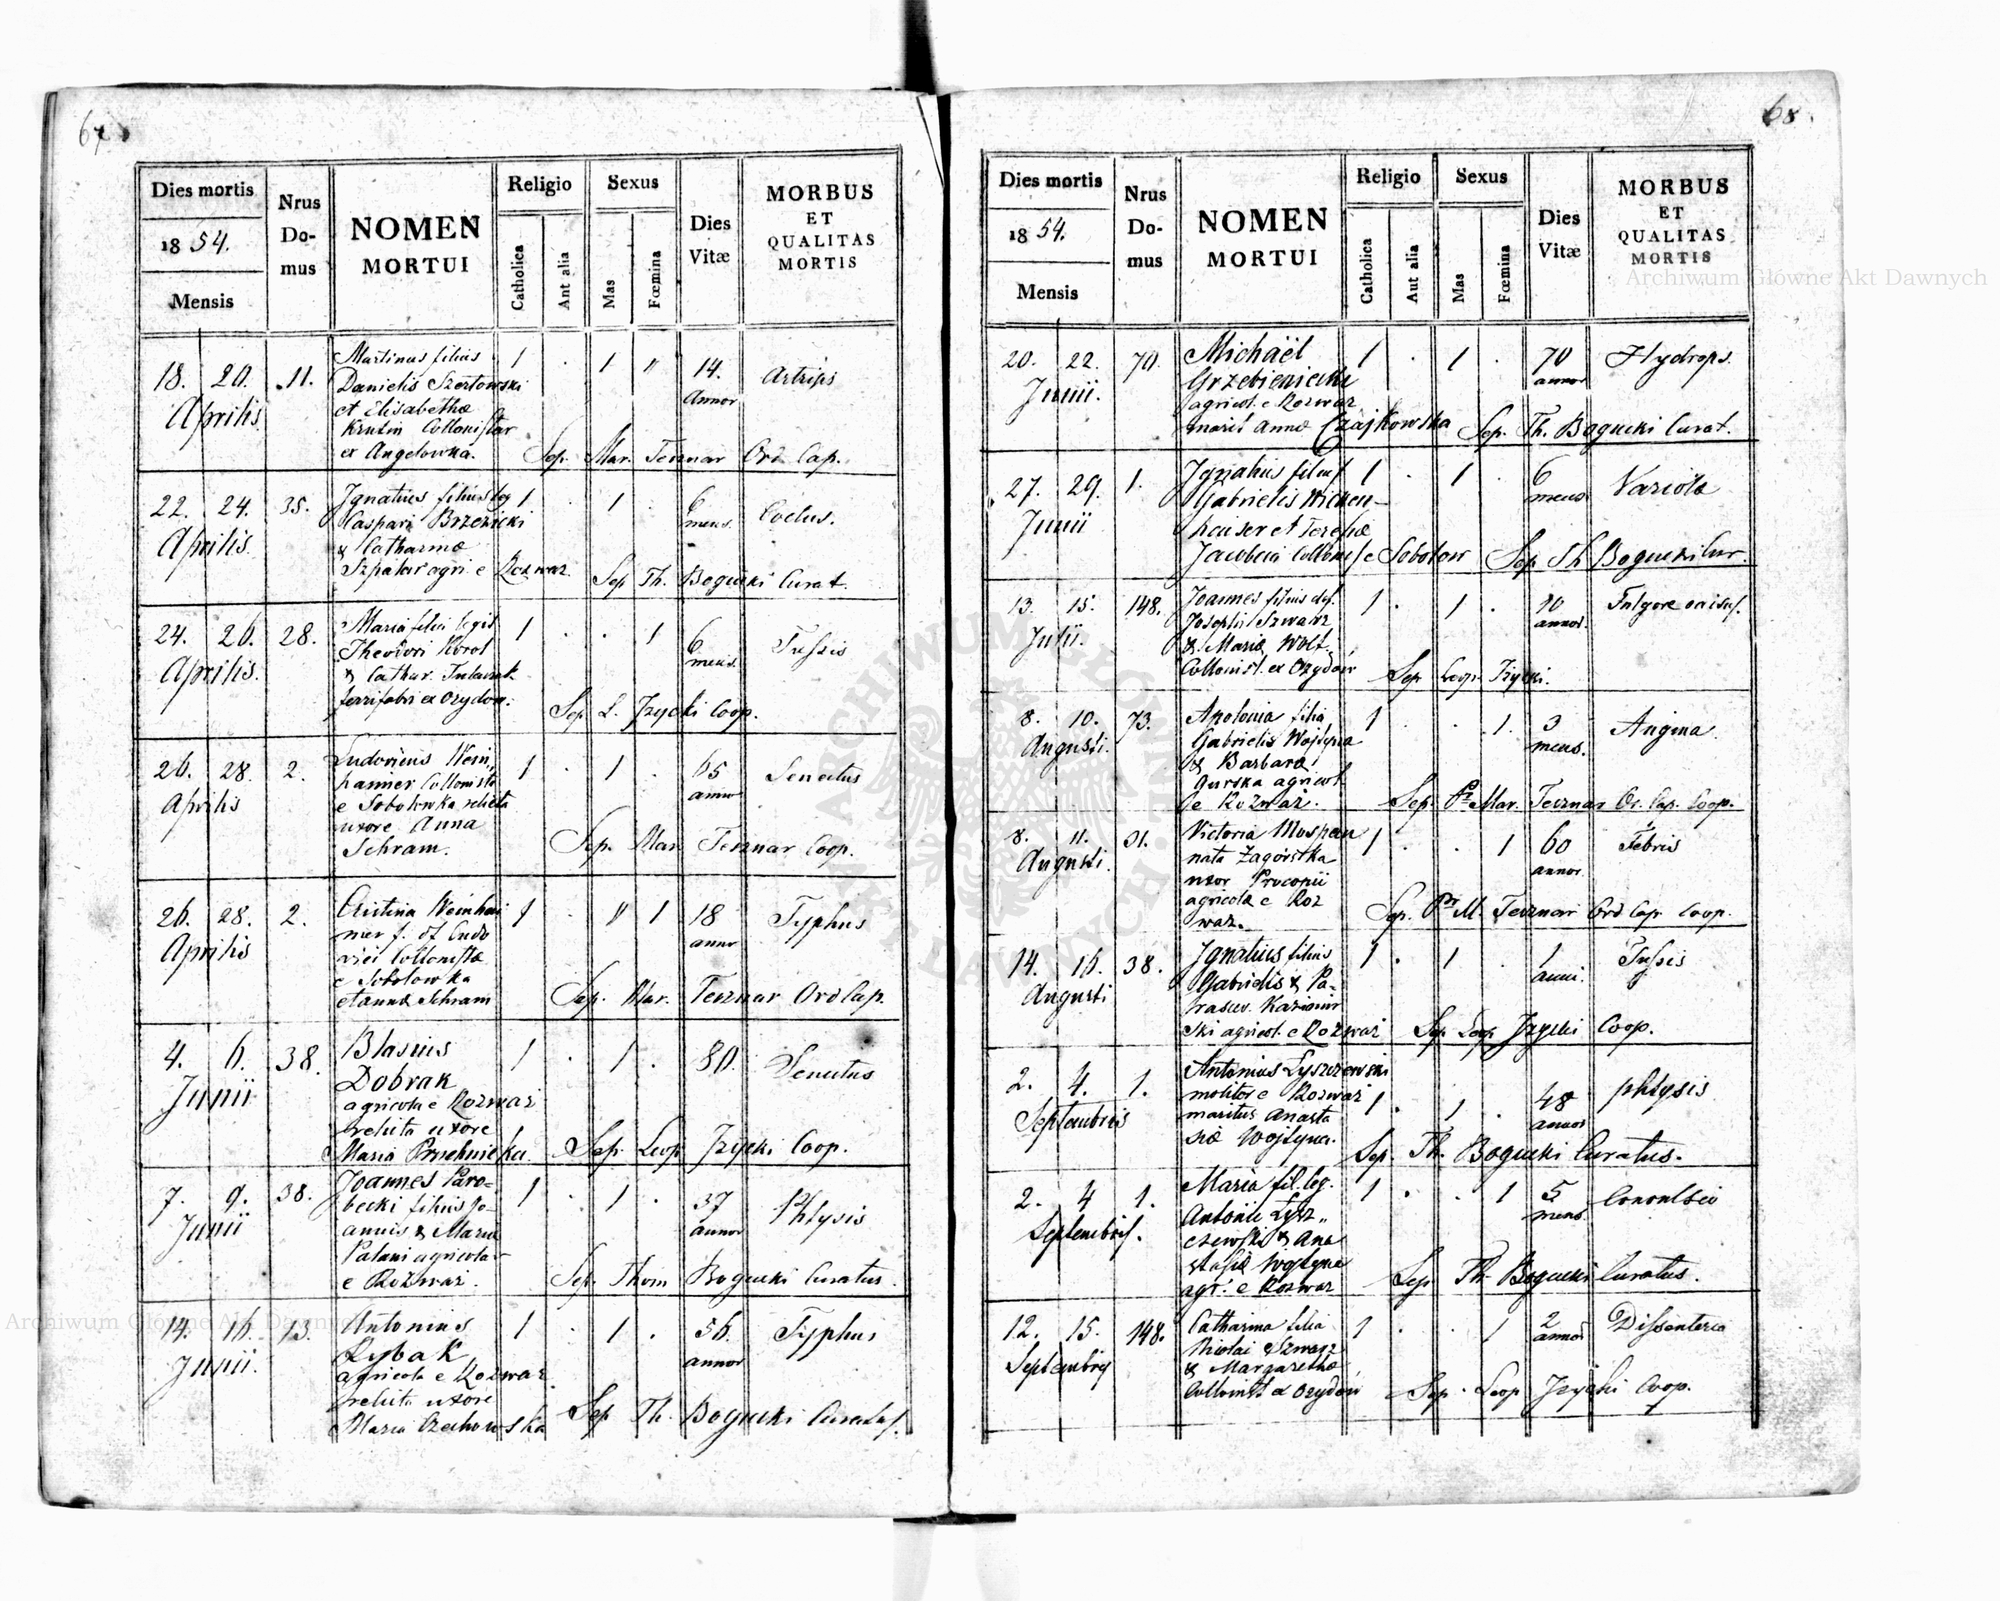 67
Dies mortis
1854.
Mensis
Nrus Do- mus
NOMEN
MORTUI
Religio
Catholica
Aut alia
Sexus
Mas
Fœmina
Dies
Vitæ
MORBUS
ET
QUALITAS
MORTIS
18. 20. 11. Martinus filius 1 . 1 " 14.
Aprilis Danielis Szertowski Annor
et Elisabethæ
Collonistar
ex Angelowka. Sep. Mar. Tersnar Ord Cap.
22. 24. 35. Ignatius filius leg 1 . 1 . 6 Coclus.
Aprilis Caspari Brzezicki mens.
& Catharinæ
Szpakar agri. e Rozwaz. Sep Th. Bogucki Curat.
24. 26. 28. Maria filia legit 1 . . 1 6 Tussis
Aprilis. Theodori Korol mens.
& Cathar.
ferrifabri ex Ozydow. Sep. L. Jzycki Coop.
26. 28. 2. Ludovicus Wein, 1 . 1 . 65 Senectus
Aprilis hamer Collonista annor
e Sobolowka relicta
uxore Anna
Schram. Sep. Mar Tersnar Coop.
26. 28. 2. Cristina Weinham 1 . " 1 18 Typhus
Aprilis mer f. df Ludo annor
vici Collonistæ
e Sobolowka
et annæ Schram Sep. Mar. Tersnar Ord Cap.
4. 6. 38. Blasius 1 . 1 . 80. Senectus
Junii Dobrak
agricola e Rozwaz
relicta uxore
Maria Sep. Leop Jzycki Coop.
7. 9. 38. Joannes Paro= 1 . 1 . 37 Phtysis
Junii becki filius Jo- annor
annis & Maria
Palani agricolar
e Rozwaz. Sep. Thom Bogucki Curatus.
14. 16. 13. Antonius 1 . 1 . 56. Typhus
Junii. Rybak annor
agricola e Rozwaz
relicta uxore
Maria Czechowska Sep Th. Bogucki Curatus.
68.
Dies mortis
1854.
Mensis
Nrus Do- mus
NOMEN
MORTUI
Religio
Catholica
Aut alia
Sexus
Mas
Fœmina
Dies
Vitæ
MORBUS
ET
QUALITAS
MORTIS
20. 22. 70. Michaël 1 . 1 . 70 Hydrops.
Junii. Grzebieniecki annor
agricol. e Rozwaz
marit Annæ Czajkowska Sep. Th. Bogucki Curat.
27. 29. 1. Ignatius filius 1 . 1 . 6 Variola
Junii Gabrielis Wicken- mens
hauser et Teresiæ
Collonis e Sobolow Sep Th Bogucki Cur.
13. 15. 148. Joannes filius def. 1 . 1 . 10 Fulgore occisus.
Julii. Josephi Szwarz annor.
& Mariæ Wolf
Collonist. ex Ozydow Sep. Leop Jzycki.
8. 10. 73. Apolonia filia 1 . . 1. 3 Angina
Augusti. Gabrielis Wojtyna mens.
& Barbaræ
Gurska agricol.
e Rozwaz. Sep. Pr. Mar. Tersnar Or. Cap. Coop.
8. 11. 31. Victoria Mospan 1 . . 1 60 Febris
Augusti. nata Zagórska annor.
uxor Procopii
agricolæ e Roz
waz. Sep. Pr M. Tersnar Ord Cap Coop.
14. 16. 38. Ignatius filius 1 . 1 . 1 Tussis
Augusti Gabrielis & Pa- anni.
rascev. Kazimir
ski agricol. e Rozwaz Sep Leop Jzycki Coop.
2. 4. 1. Antonius Lyszczewski 1 . 1 . 48 phtysis
Septembris molitor e Rozwaz annor
maritus Anasta
siæ Wojtyna. Sep. Th. Bogucki Curatus.
2. 4 1. Maria fil. leg. 1 . . 1 5
Septembris. Antonii Lysz„ mens.
czewski & Ana
stasiæ Wojtyna
agr. e Rozwaz Sep Th. Bogucki Curatus.
12. 15. 148. Catharina filia 1 . . 1 2 Dissenteria
Septembris Nicolai Szwarz annor
& Margarethæ
Collonist ex Ozydow Sep. Leop Jzycki Coop.
Archiwum Główne Akt Dawnych
Archiwum Główne Akt Dawnych